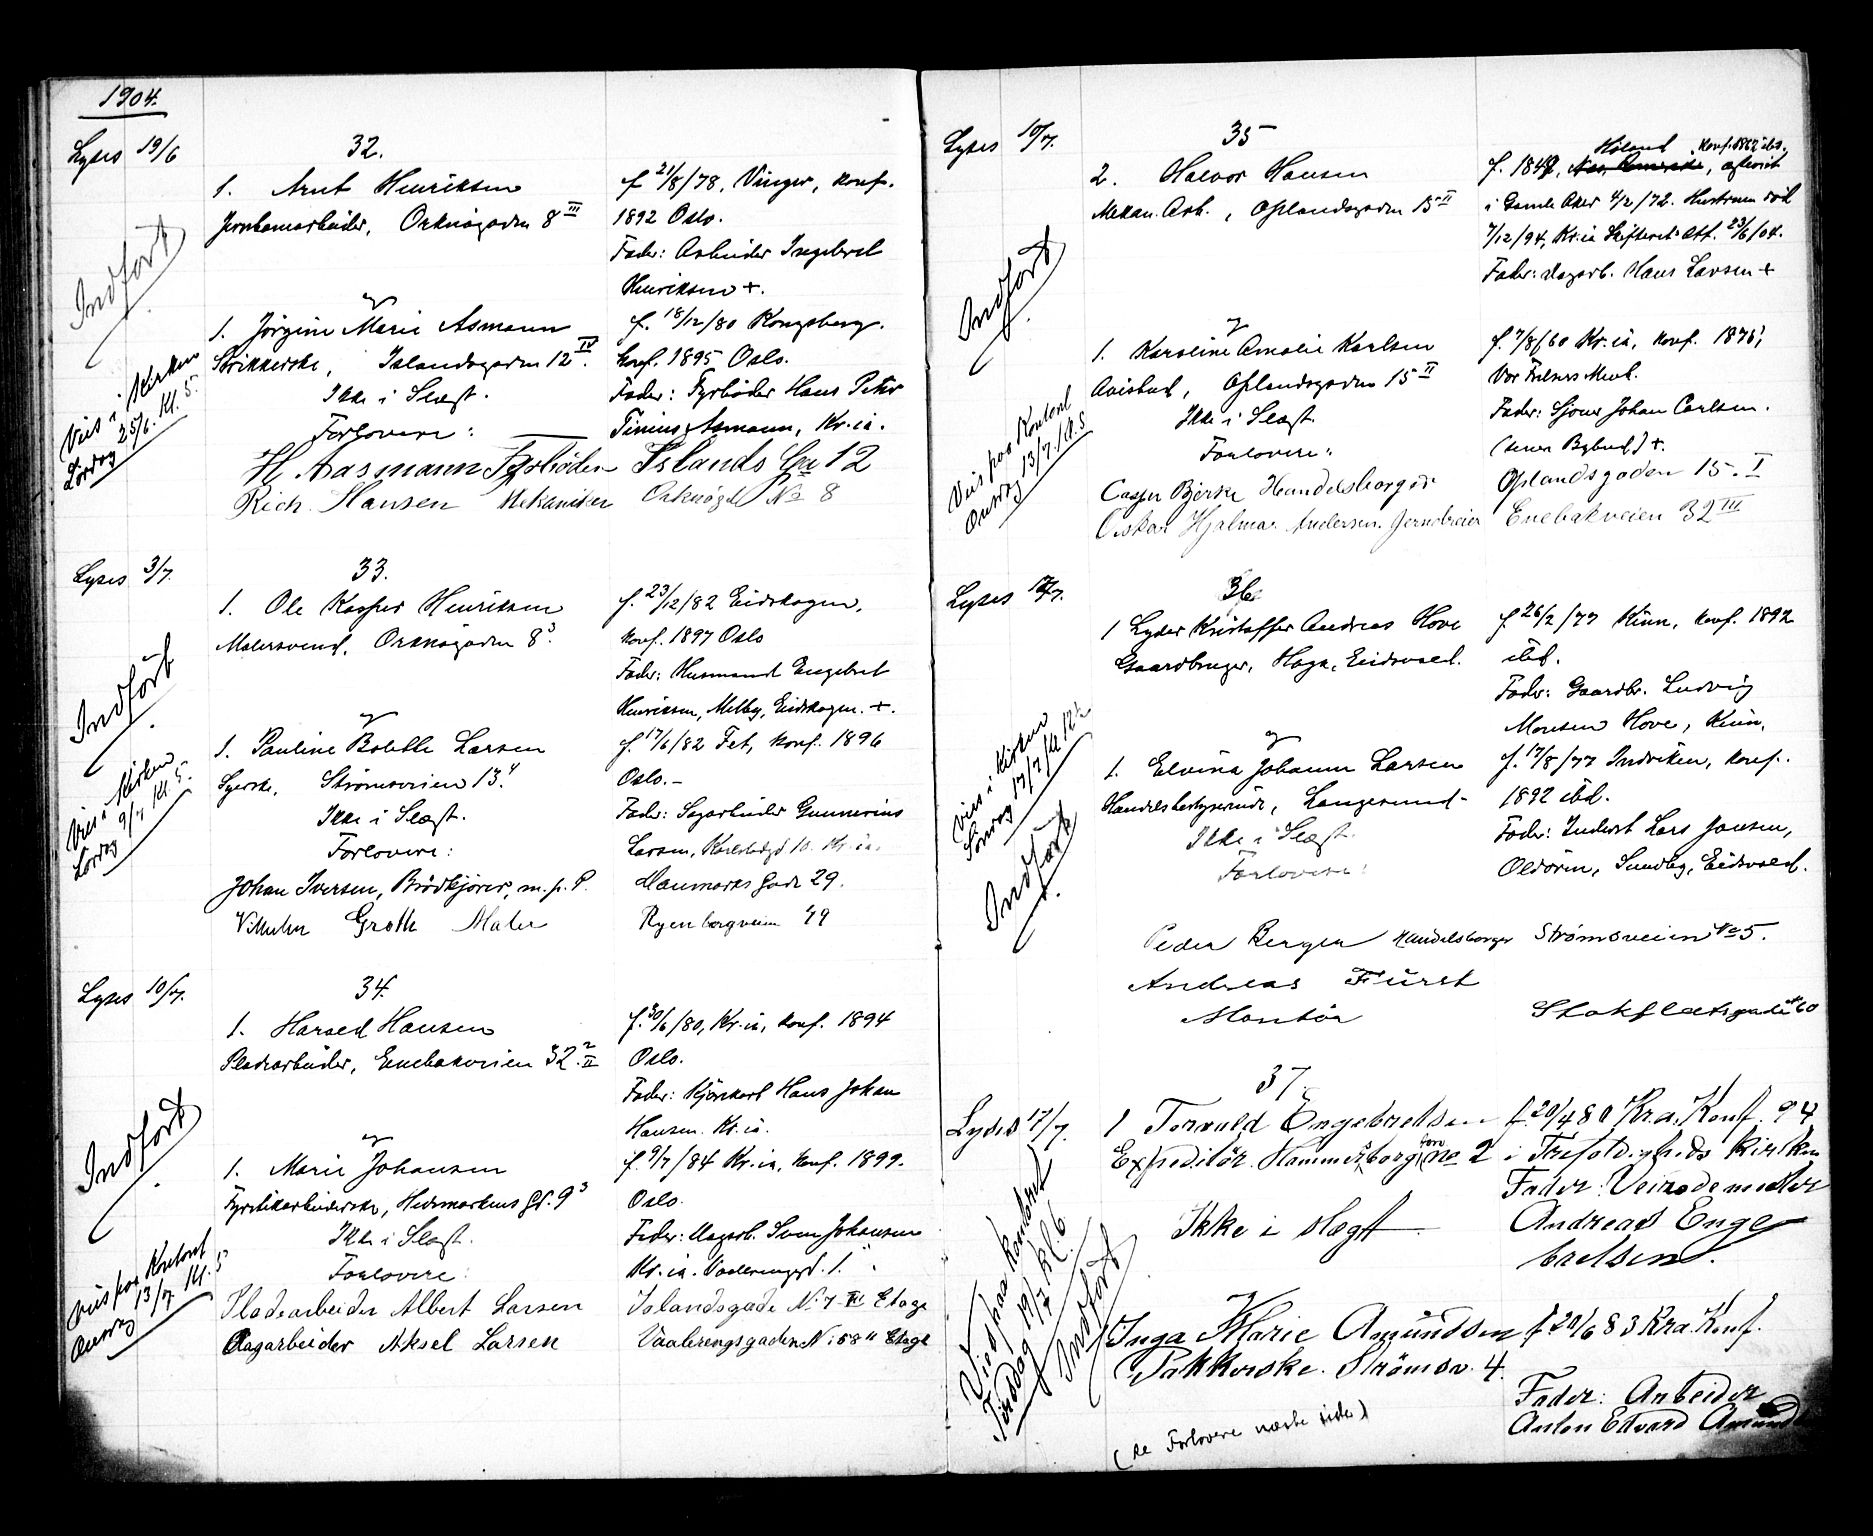 1904.
Lyses 19/6
32.
1. Arnt Henriksen
f. 21/8/78, Vinger, konf.
Jernbanearbeider, Orknøgaden 8 III
1892 Oslo.
Fader: Arbeider Ingebret
Henriksen +.
Indført
og
1. Jørgine Marie Asmann
f. 18/12/80 Kongsberg.
Strikkerske, Islandsgaden 12 IV.
konf. 1895 Oslo.
Ikke i Slægt.
Fader: Fyrbøder Hans Peter
Forlovere:
Tinius Asmann, Kr.ia.
Vies i Kirken
Lørdag 25/6. Kl. 5.
H. Aasmann Fyrbøder Islands Ga 12
Rich. Hansen Mekaniker Orknøgd No 8
Lyses 3/7.
33.
1. Ole Kasper Henriksen
f. 23/12/82 Eidskogen,
Malersvend, Orknøgaden 8 3.
konf. 1897 Oslo
Fader: Husmand Engebret
Henriksen, Melby, Eidskogen. +.
Indført
og
1. Pauline Bolette Larsen
f. 17/6/82 Fet, konf. 1896
Syerske, Strømsveien 13. 4
Oslo.-
Ikke i Slægt.
Fader: Sagarbeider Gunnerius
Forlovere:
Larsen, Karlstadgd 10. Kr.ia.
Vies i Kirken
Lørdag 9/7 Kl. 5.
Johan Iversen, Brødkjører, m. p. P. Danmarks Gade 29.
Vilhelm Groth Maler Ryenbergveien 49
Lyses 10/7.
34.
1. Harald Hansen
f. 30/6/80, Kr.ia, konf. 1894
Pladearbeider, Enebakveien 32. II
Oslo.
Fader: Kjørekarl Hans Johan
Hansen. Kr.ia.
Indført
og
1. Marie Johansen
f. 9/7/84 Kr.ia, konf. 1899.
Fyrstikarbeiderske, Hedemarkens Gd. 9 3
Oslo.
Ikke i Slægt.
Fader: Dagarb. Sven Johansen
Forlovere:
Kr.ia. Vaalerenggd. 1.
Vies paa Kontoret
Onsdag 13/7 Kl. 5
Pladearbeider Albert Larsen Islandsgade No 7 III Etage
Dagarbeider Aksel Larsen Vaalerengsgaden No 58 II Etage
Lyses 10/7.
35
Høland konf. 1862 ibd.
2. Halvor Hansen
f. 1847, , afløst
Mekan. Arb., Oplandsgaden 15 II
i Gamle Aker 4/2/72. Hustruen død
7/12/94, Kr.ia Skifteret Att. 23/6/04.
Fader: Dagarb. Hans Larsen +
Indført
og
1. Karoline Amalie Karlsen
f. 7/8/60 Kr.ia, konf. 1875 i
Avisbud, Oplandsgaden 15 II
Vor Frelsers Menh.
Ikke i Slægt.
Fader: Sjømd Johan Carlsen.
Forlovere:
(senere Bybud) +.
Vies paa Kontoret
Onsdag 13/7. Kl. 5
Casper Bjerke Handelsborger Oplandsgaden 15. I
Oskar Hjalmar Andersen. Jerndreier Enebakveien 32 III
Lyses 17/7.
36.
1 Lyder Kristoffer Andreas Hove
f. 26/2/77 Kinn, konf. 1892
Gaardbruger, Haga, Eidsvold.
ibd.
Fader: Gaardbr. Ludvig
Monsen Hove, Kinn.
og
1. Elvina Johanne Larsen
f. 17/8/77 Indviken, konf.
Handelsbestyrerinde, Langesund-
1892 ibd.
Ikke i Slægt.
Fader: Inderst Lars Jonsen,
Forlovere:
Oldören, Sundby, Eidsvold.
Vies i Kirken
Søndag 17/7 Kl 12½
Indført
Peder Berger Handelsborger Strømsveien No 5.
Andreas Fürst
Montör Stokfletsgade No 60
37.
Lyses 17/7.
1 Torvald Engebretsen f. 20/4 80 Kr.a. Konf. 94
Expeditör. Hammersborg No 2 i Trefoldigheds kirken
Fader: Veirodemester
Ikke i slægt
Andreas Enge
bretsen.
Vies paa kontoret
Tirsdag 19/7 kl. 6
Indført
Inga Marie Amundsen f. 20/6 83 Kra. Konf.
Pakkerske. Strömsv. 4.
Fader: Arbeider
Anton Edvard Amund
(se Forlovere næste side)